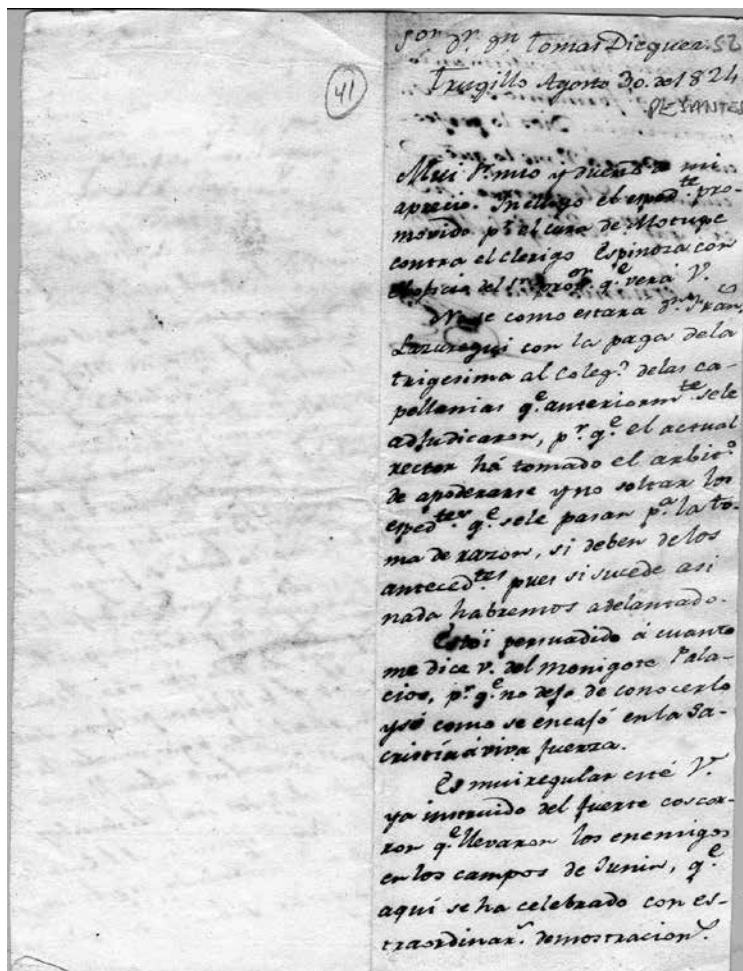 41
Sor. Dr. Dn. Tomas Dieguez. 52
Trugillo Agosto 30. del 824
Mui Sr. mio y dueño de mi
aprecio. Incluyo el esped.te pro-
movido pr. el cura de Motupe
contra el clerigo Espinoza con
noticia del Sr. qe. verá V.
No se como estara Dn. Fran.
Lazuregui con la paga dela
trigesima al Coleg.o delas ca-
pellanias qe. anteriorm.te sele
adjudicaron, pr. qe. el actual
rector há tomado el arbit.o
de apoderarse y no soltar los
esped.tes qe. sele pasan pa. la to-
ma de razon, si deben delos
anteced.tes pues si sucede asi
nada habremos adelantado.
Estoi persuadido á cuanto
me dice V. del monigote Pala-
cios, pr. qe. no dejo de conocerlo
y sé como se encajó en la Sa-
cristía á viva fuerza.
Es mui regular esté V.
ya instruido del fuerte coscor-
ron qe. llevaron los enemigos
en los campos de Junin, qe.
aquí se ha celebrado con es-
traordinar.s demostracion.s